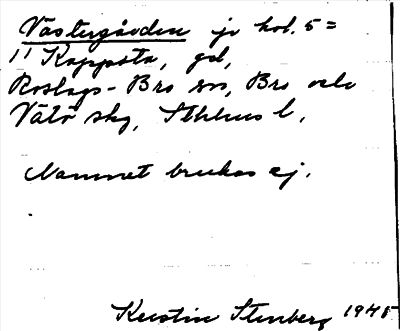 Västergården jr kol. 5 =
11 Kappsta, gd,
Roslags-Bro sn, Bro och
Vätö skg, Sthlms l.
Namnet brukas ej.
Kerstin Stenberg 1945